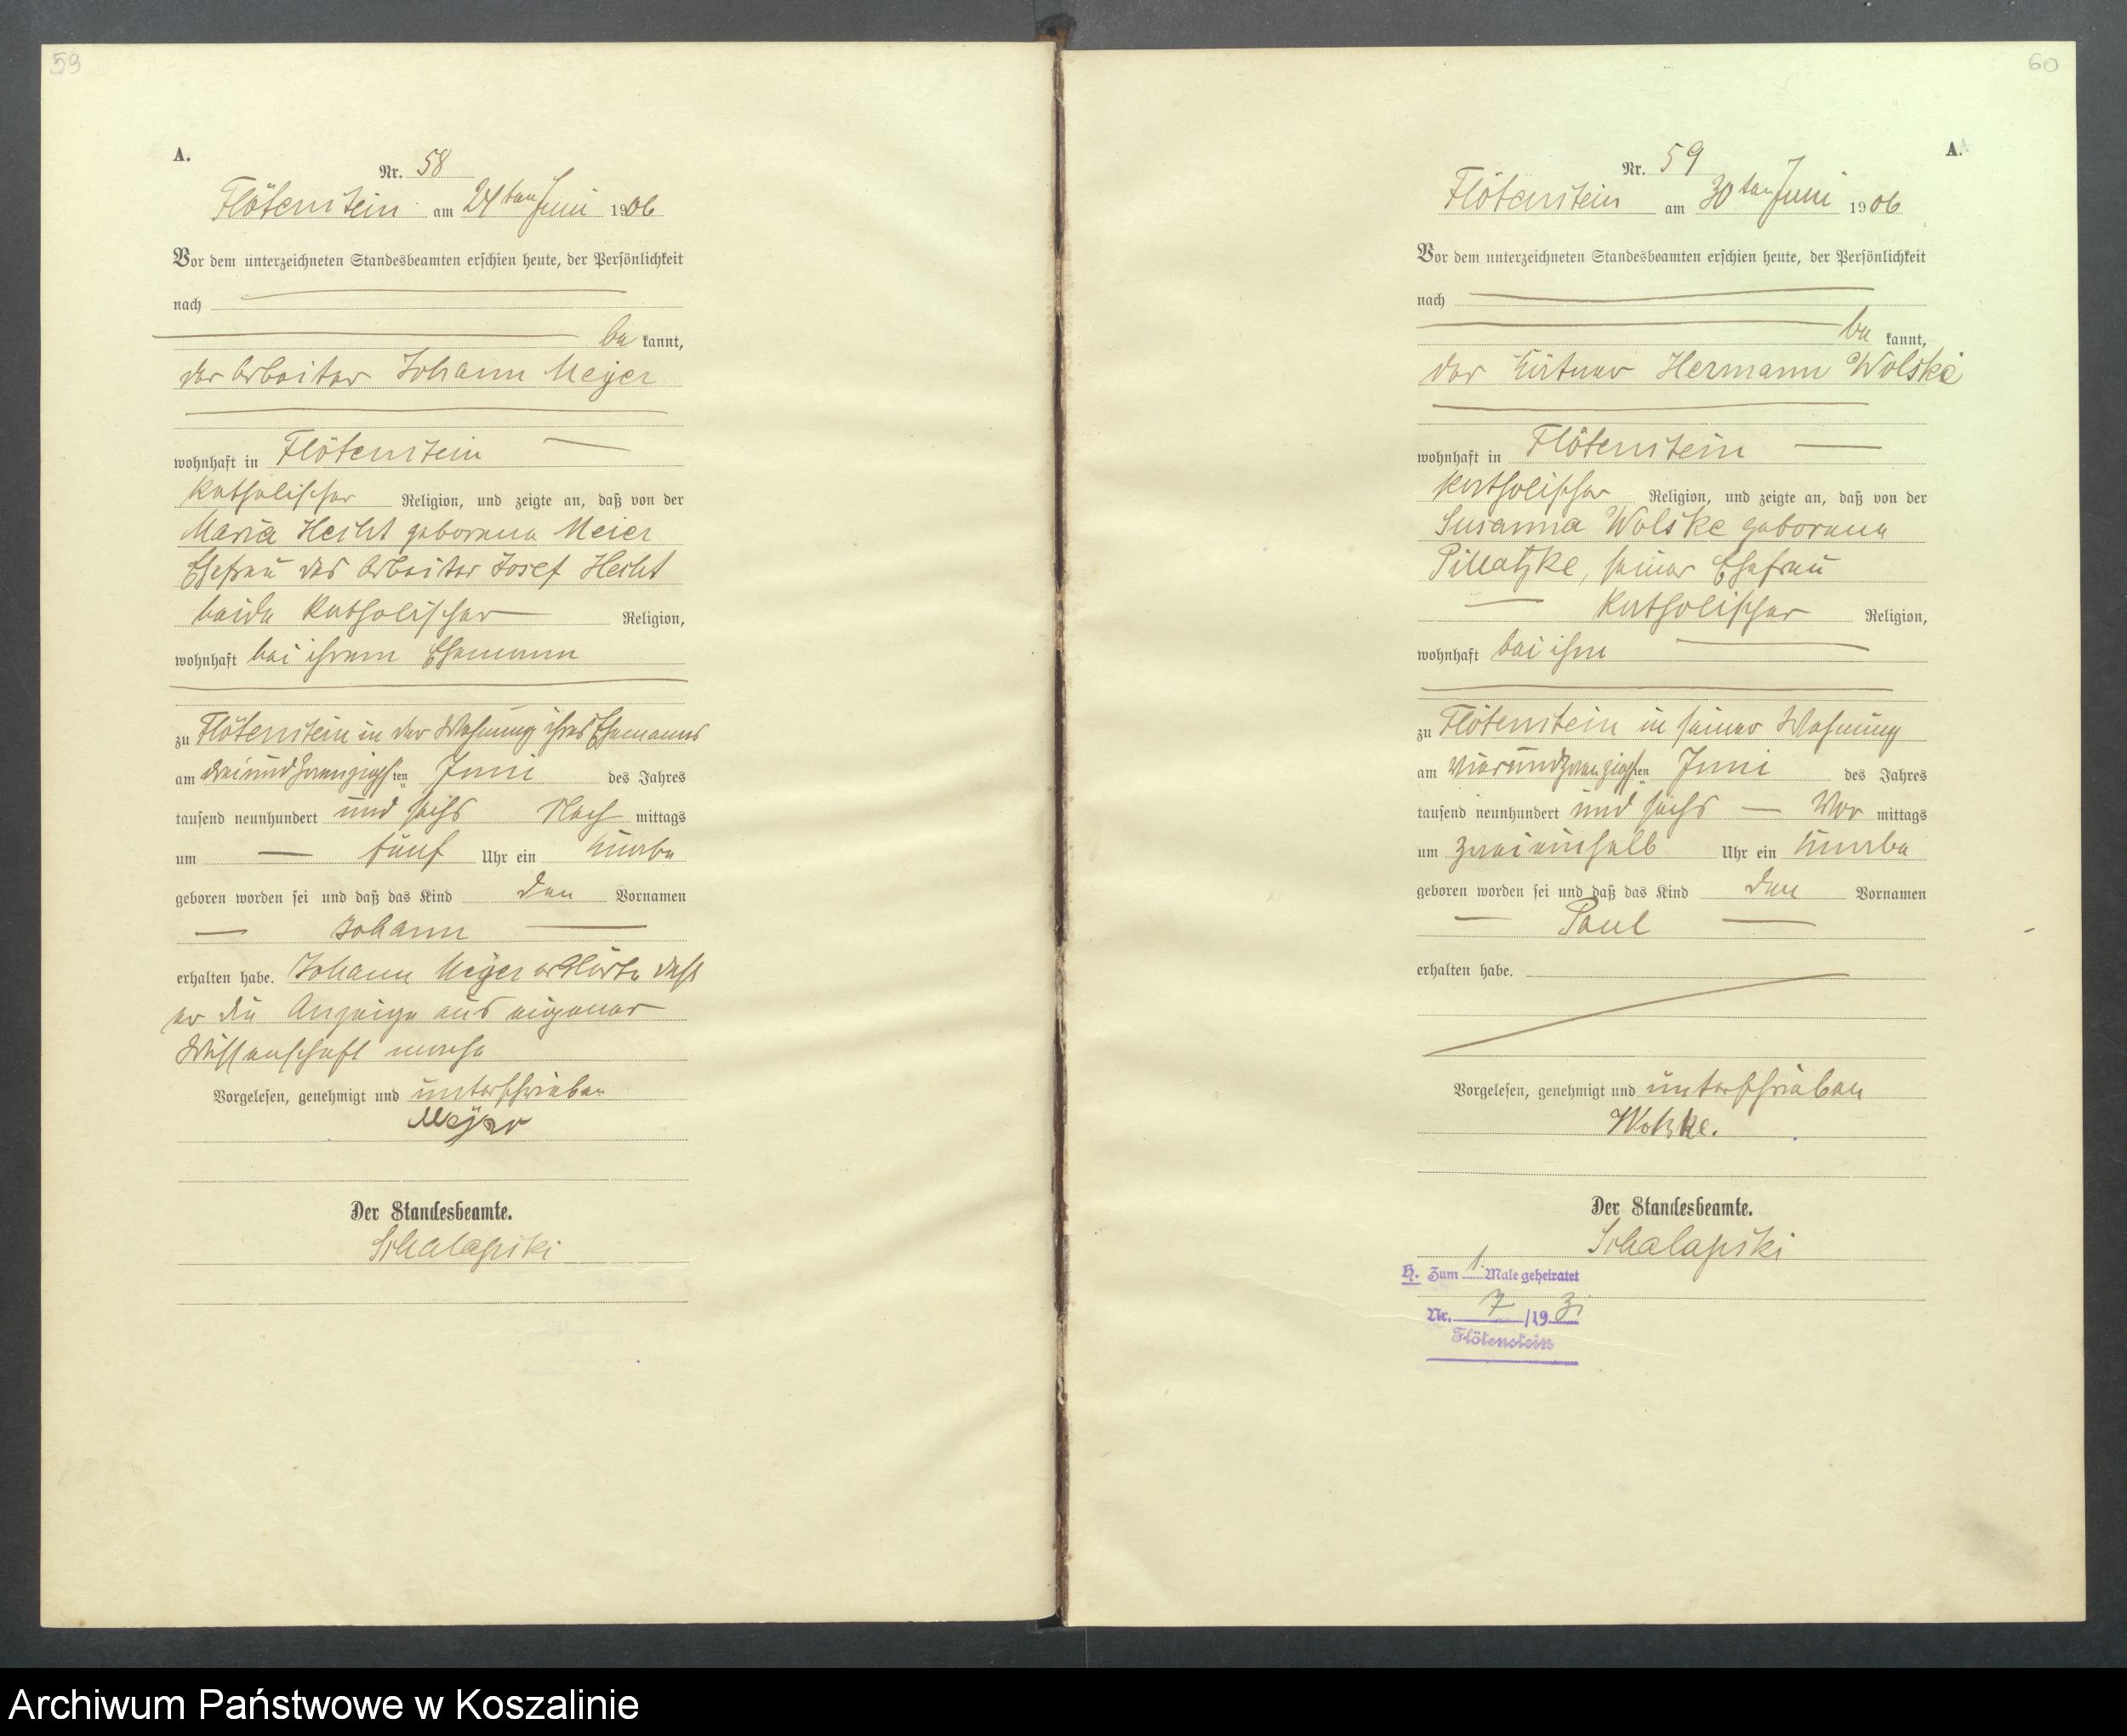 59
A.
Nr. 58
Flötenstein am 24ten Juni 1906
Vor dem unterzeichneten Standesbeamten erschien heute, der Persönlichkeit
nach
be kannt,
der Arbeiter Johann Meyer
wohnhaft in Flötenstein
katholischer Religion, und zeigte an, daß von der
Maria Hecht geborene Meier
Ehefrau des Arbeiter Josef Hecht
beide katholischer Religion,
wohnhaft bei ihrem Ehemann
zu Flötenstein in der Wohnung ihres Ehemanns
am dreiundzwanzigsten Juni des Jahres
tausend neunhundert und sechs Nach mittags
um fünf Uhr ein Knabe
geboren worden sei und daß das Kind den Vornamen
Johann
erhalten habe. Johann Meyer erklärte daß
er die Anzeige aus eigener
Wissenschaft mache
Vorgelesen, genehmigt und unterschrieben
Meyer
Der Standesbeamte.
Schalapski
60
A.
Nr. 59
Flötenstein am 30ten Juni 1906
Vor dem unterzeichneten Standesbeamten erschien heute, der Persönlichkeit
nach
be kannt,
der Hermann Wolske
wohnhaft in Flötenstein
katholischer Religion, und zeigte an, daß von der
Susanna Wolske geborene
Pillatzke, seiner Ehefrau
katholischer Religion,
wohnhaft bei ihm
zu Flötenstein in seiner Wohnung
am vierundzwanzigsten Juni des Jahres
tausend neunhundert und sechs Vor mittags
um zweieinhalb Uhr ein Knabe
geboren worden sei und daß das Kind den Vornamen
Paul
erhalten habe.
Vorgelesen, genehmigt und unterschrieben
Wolske.
Der Standesbeamte.
Schalapski
H. Zum 1. Male geheiratet
Nr. 7 /1931
Flötenstein
Archiwum Państwowe w Koszalinie